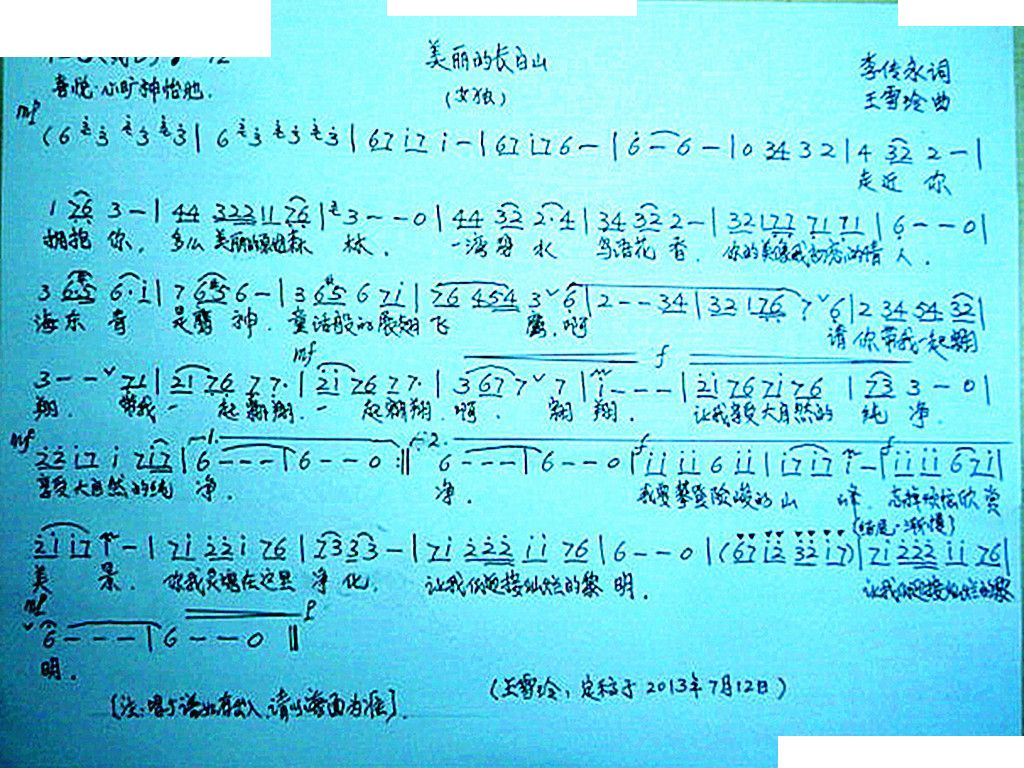 美丽的长白山
喜悦.心旷神怡地.
(女独)
李传永词
王雪玲曲
mf
(6 3 3 3 3 | 6 3 3 3 3 | 67 i7 i - | 67 i7 6 - | 6 - 6 - | 0 34 3 2 | 4 32 2 - |
走近 你
1 76 3 - | 44 32211 76 | 3 - - 0 | 44 32 2·4 | 34 32 2 - | 32 177 71 71 | 6 - - 0 |
拥抱 你. 多么 美丽的原始森 林. 一湾碧水 鸟语花香. 你的美像我初恋的情人.
3 6·5 6·i | 7 6·5 6 - | 3 6·5 6 7i | 76 454 3 ˅ 6 | 2 - - 34 | 32 176 7 ˅ 6 | 2 34 54 32 |
海东 青 是鹰 神. 童话般的展翅飞 鹰.啊 请你带我一起翱
mf f
3 - - ˅ 71 | 21 76 77· | 2i 76 77· | 3 67 7 ˅ 7 | i - - - | 2i 76 7i 76 | 73 3 - 0 |
翔. 带我一 起翱翔.一 起翱翔.啊. 翱翔. 让我享受大自然的 纯净.
mf 1. 2. f f
22 i7 i 7i7 | 6 - - - | 6 - - 0 :|| 6 - - - | 6 - - 0 | ii ii 6 ii | i7 i7 i - | ii ii 6 7i |
享受大自然的纯 净. 净. 我要攀登险峻的山 峰. 忘掉烦恼欣赏
(结尾.渐慢)
2i i7 i - | 7i 22i 76 | 7333 - | 7i 222 ii 76 | 6 - - 0 | (67 i2 32 i7) | 7i 222 ii 76 |
美 景. 你我灵魂在这里 净化. 让我们迎接灿烂的黎明. 让我们迎接灿烂的黎
mf p
˅ 6 - - - | 6 - - 0 ||
明.
(王雪玲,定稿于2013年7月12日)
[注:唱与谱如有出入,请以谱面为准].